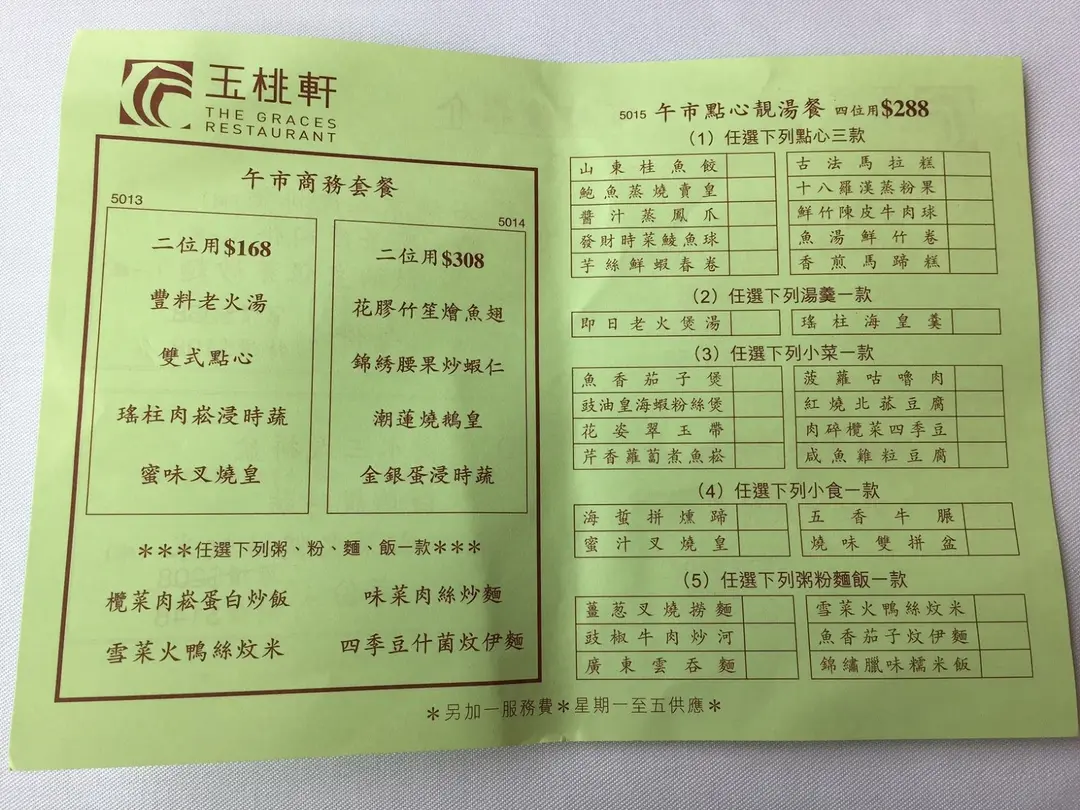 玉桃軒
THE GRACES
RESTAURANT
午市商務套餐
5013
二位用$168
豐料老火湯
雙式點心
瑤柱肉崧浸時蔬
蜜味叉燒皇
5014
二位用$308
花膠竹笙燴魚翅
錦綉腰果炒蝦仁
潮蓮燒鵝皇
金銀蛋浸時蔬
***任選下列粥、粉、麵、飯一款***
欖菜肉崧蛋白炒飯
味菜肉絲炒麵
雪菜火鴨絲炆米
四季豆什菌炆伊麵
5015 午市點心靚湯餐 四位用$288
(1) 任選下列點心三款
山東桂魚餃
古法馬拉糕
鮑魚蒸燒賣皇
十八羅漢蒸粉果
醬汁蒸鳳爪
鮮竹陳皮牛肉球
發財時菜鯪魚球
魚湯鮮竹卷
芋絲鮮蝦春卷
香煎馬蹄糕
(2) 任選下列湯羹一款
即日老火煲湯
瑤柱海皇羹
(3) 任選下列小菜一款
魚香茄子煲
菠蘿咕嚕肉
豉油皇海蝦粉絲煲
紅燒北菰豆腐
花姿翠玉帶
肉碎欖菜四季豆
芹香蘿蔔煮魚崧
咸魚雞粒豆腐
(4) 任選下列小食一款
海蜇拼燻蹄
五香牛𦟌
蜜汁叉燒皇
燒味雙拼盆
(5) 任選下列粥粉麵飯一款
薑葱叉燒撈麵
雪菜火鴨絲炆米
豉椒牛肉炒河
魚香茄子炆伊麵
廣東雲吞麵
錦繡臘味糯米飯
*另加一服務費*星期一至五供應*